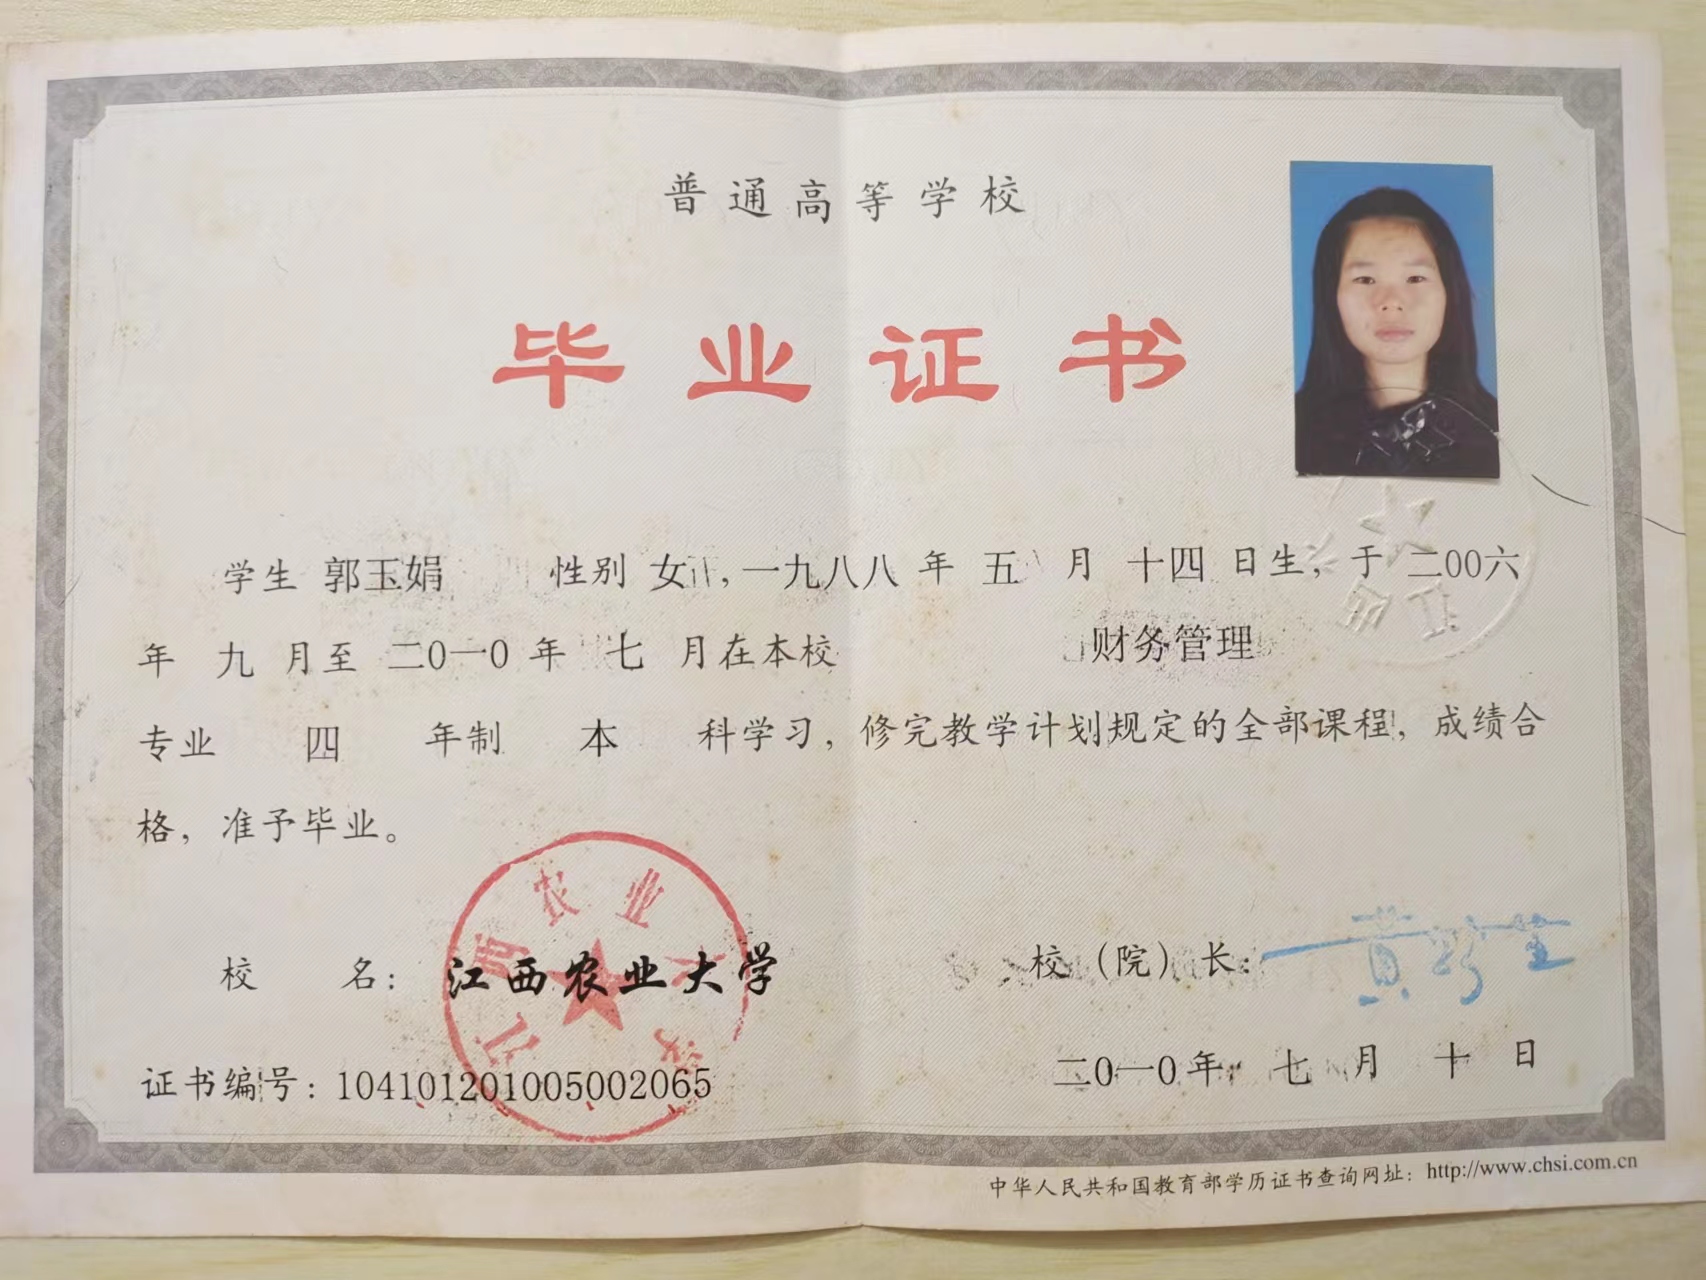 普通高等学校
毕业证书
学生 郭玉娟 性别 女,一九八八 年 五 月 十四 日生,于 二00六
年 九 月至 二0一0 年 七 月在本校 财务管理
专业 四 年制 本 科学习,修完教学计划规定的全部课程,成绩合
格,准予毕业。
江西农业大学
校 名: 江西农业大学 校(院)长:
证书编号:104101201005002065 二0一0年 七 月 十 日
中华人民共和国教育部学历证书查询网址:http://www.chsi.com.cn